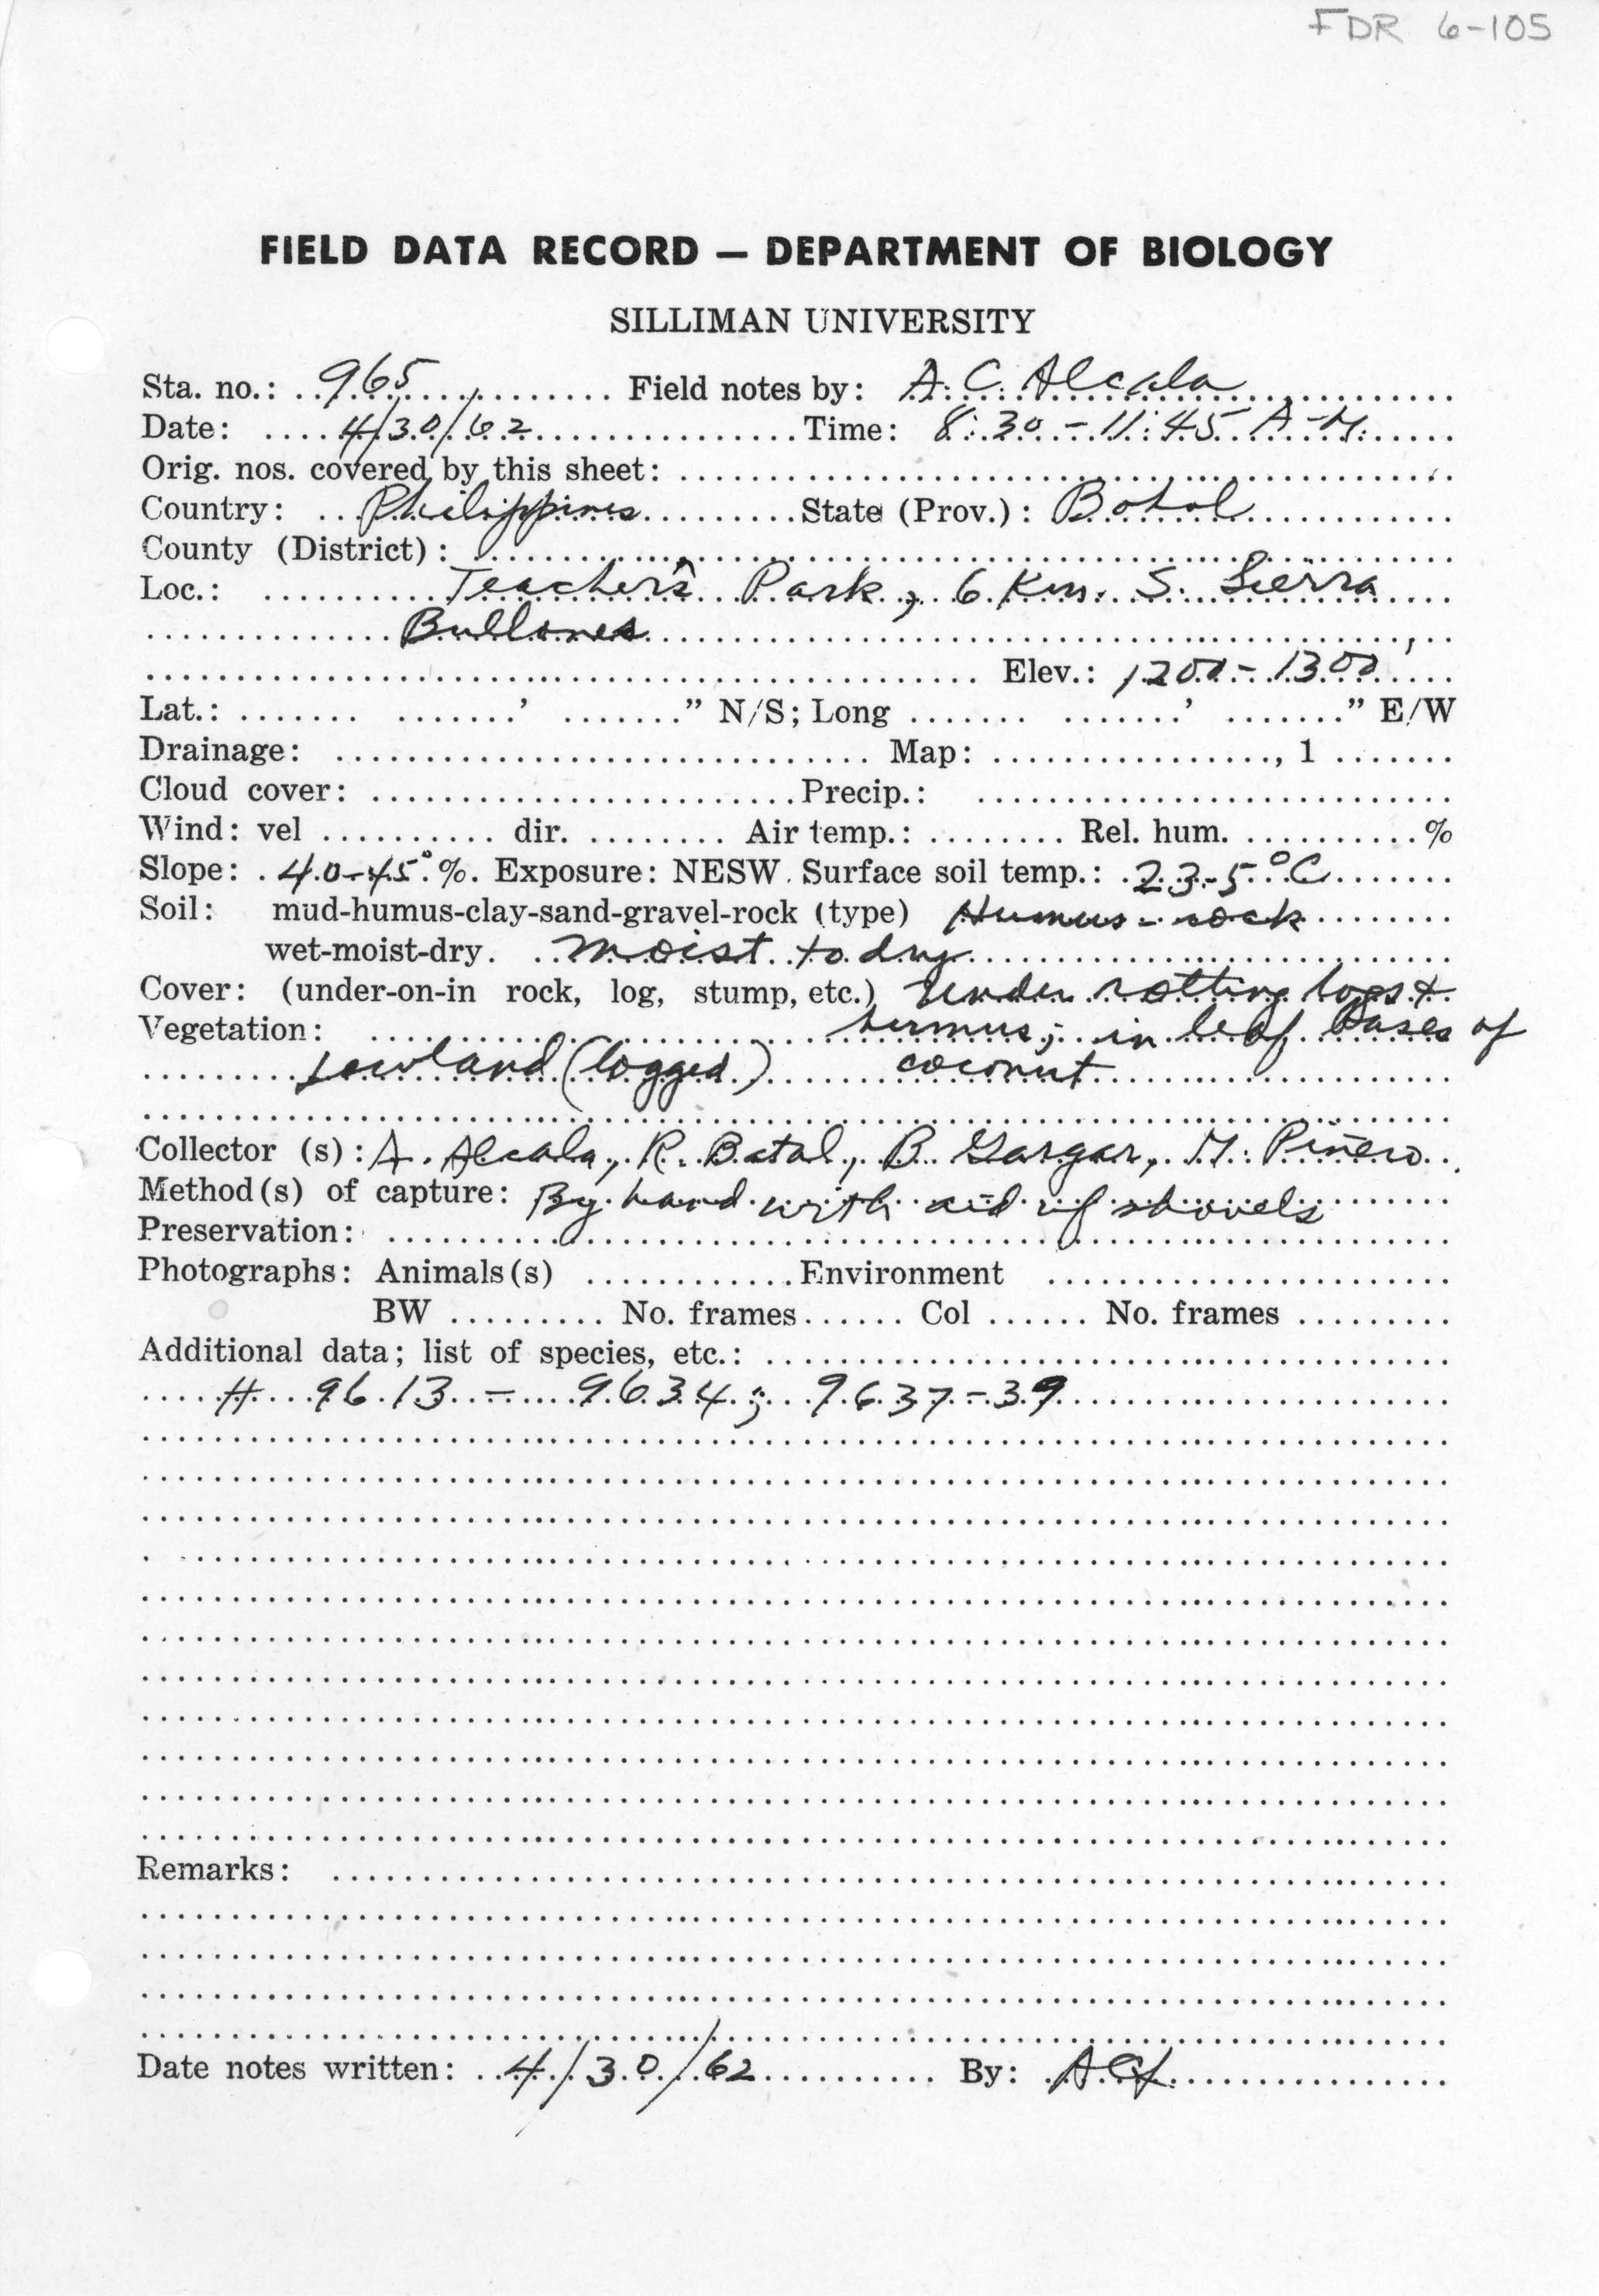 FDR 6-105
FIELD DATA RECORD — DEPARTMENT OF BIOLOGY
SILLIMAN UNIVERSITY
Sta. no.: 965 Field notes by: A. C. Alcala
Date: 4/30/62 Time: 8:30 - 11:45 A.M.
Orig. nos. covered by this sheet:
Country: Philippines State (Prov.): Bohol
County (District):
Loc.: Teacher's Park, 6 Km. S. Sierra
Bullones
Elev.: 1200 - 1300'
Lat.: ' " N/S; Long ' " E/W
Drainage: Map: , 1
Cloud cover: Precip.:
Wind: vel dir. Air temp.: Rel. hum. %
Slope: 40-45° %. Exposure: NESW. Surface soil temp.: 23.5°C
Soil: mud-humus-clay-sand-gravel-rock (type) Humus - rock
wet-moist-dry. moist to dry
Cover: (under-on-in rock, log, stump, etc.) Under rotting logs &
Vegetation: humus; in leaf bases of
Lowland (logged) coconut
Collector (s): A. Alcala, R. Batal, B. Gargar, M. Piñero
Method(s) of capture: By hand with aid of shovels
Preservation:
Photographs: Animals(s) Environment
BW No. frames Col No. frames
Additional data; list of species, etc.:
# 9613 - 9634; 9637-39
Remarks:
Date notes written: 4/30/62 By: ACA